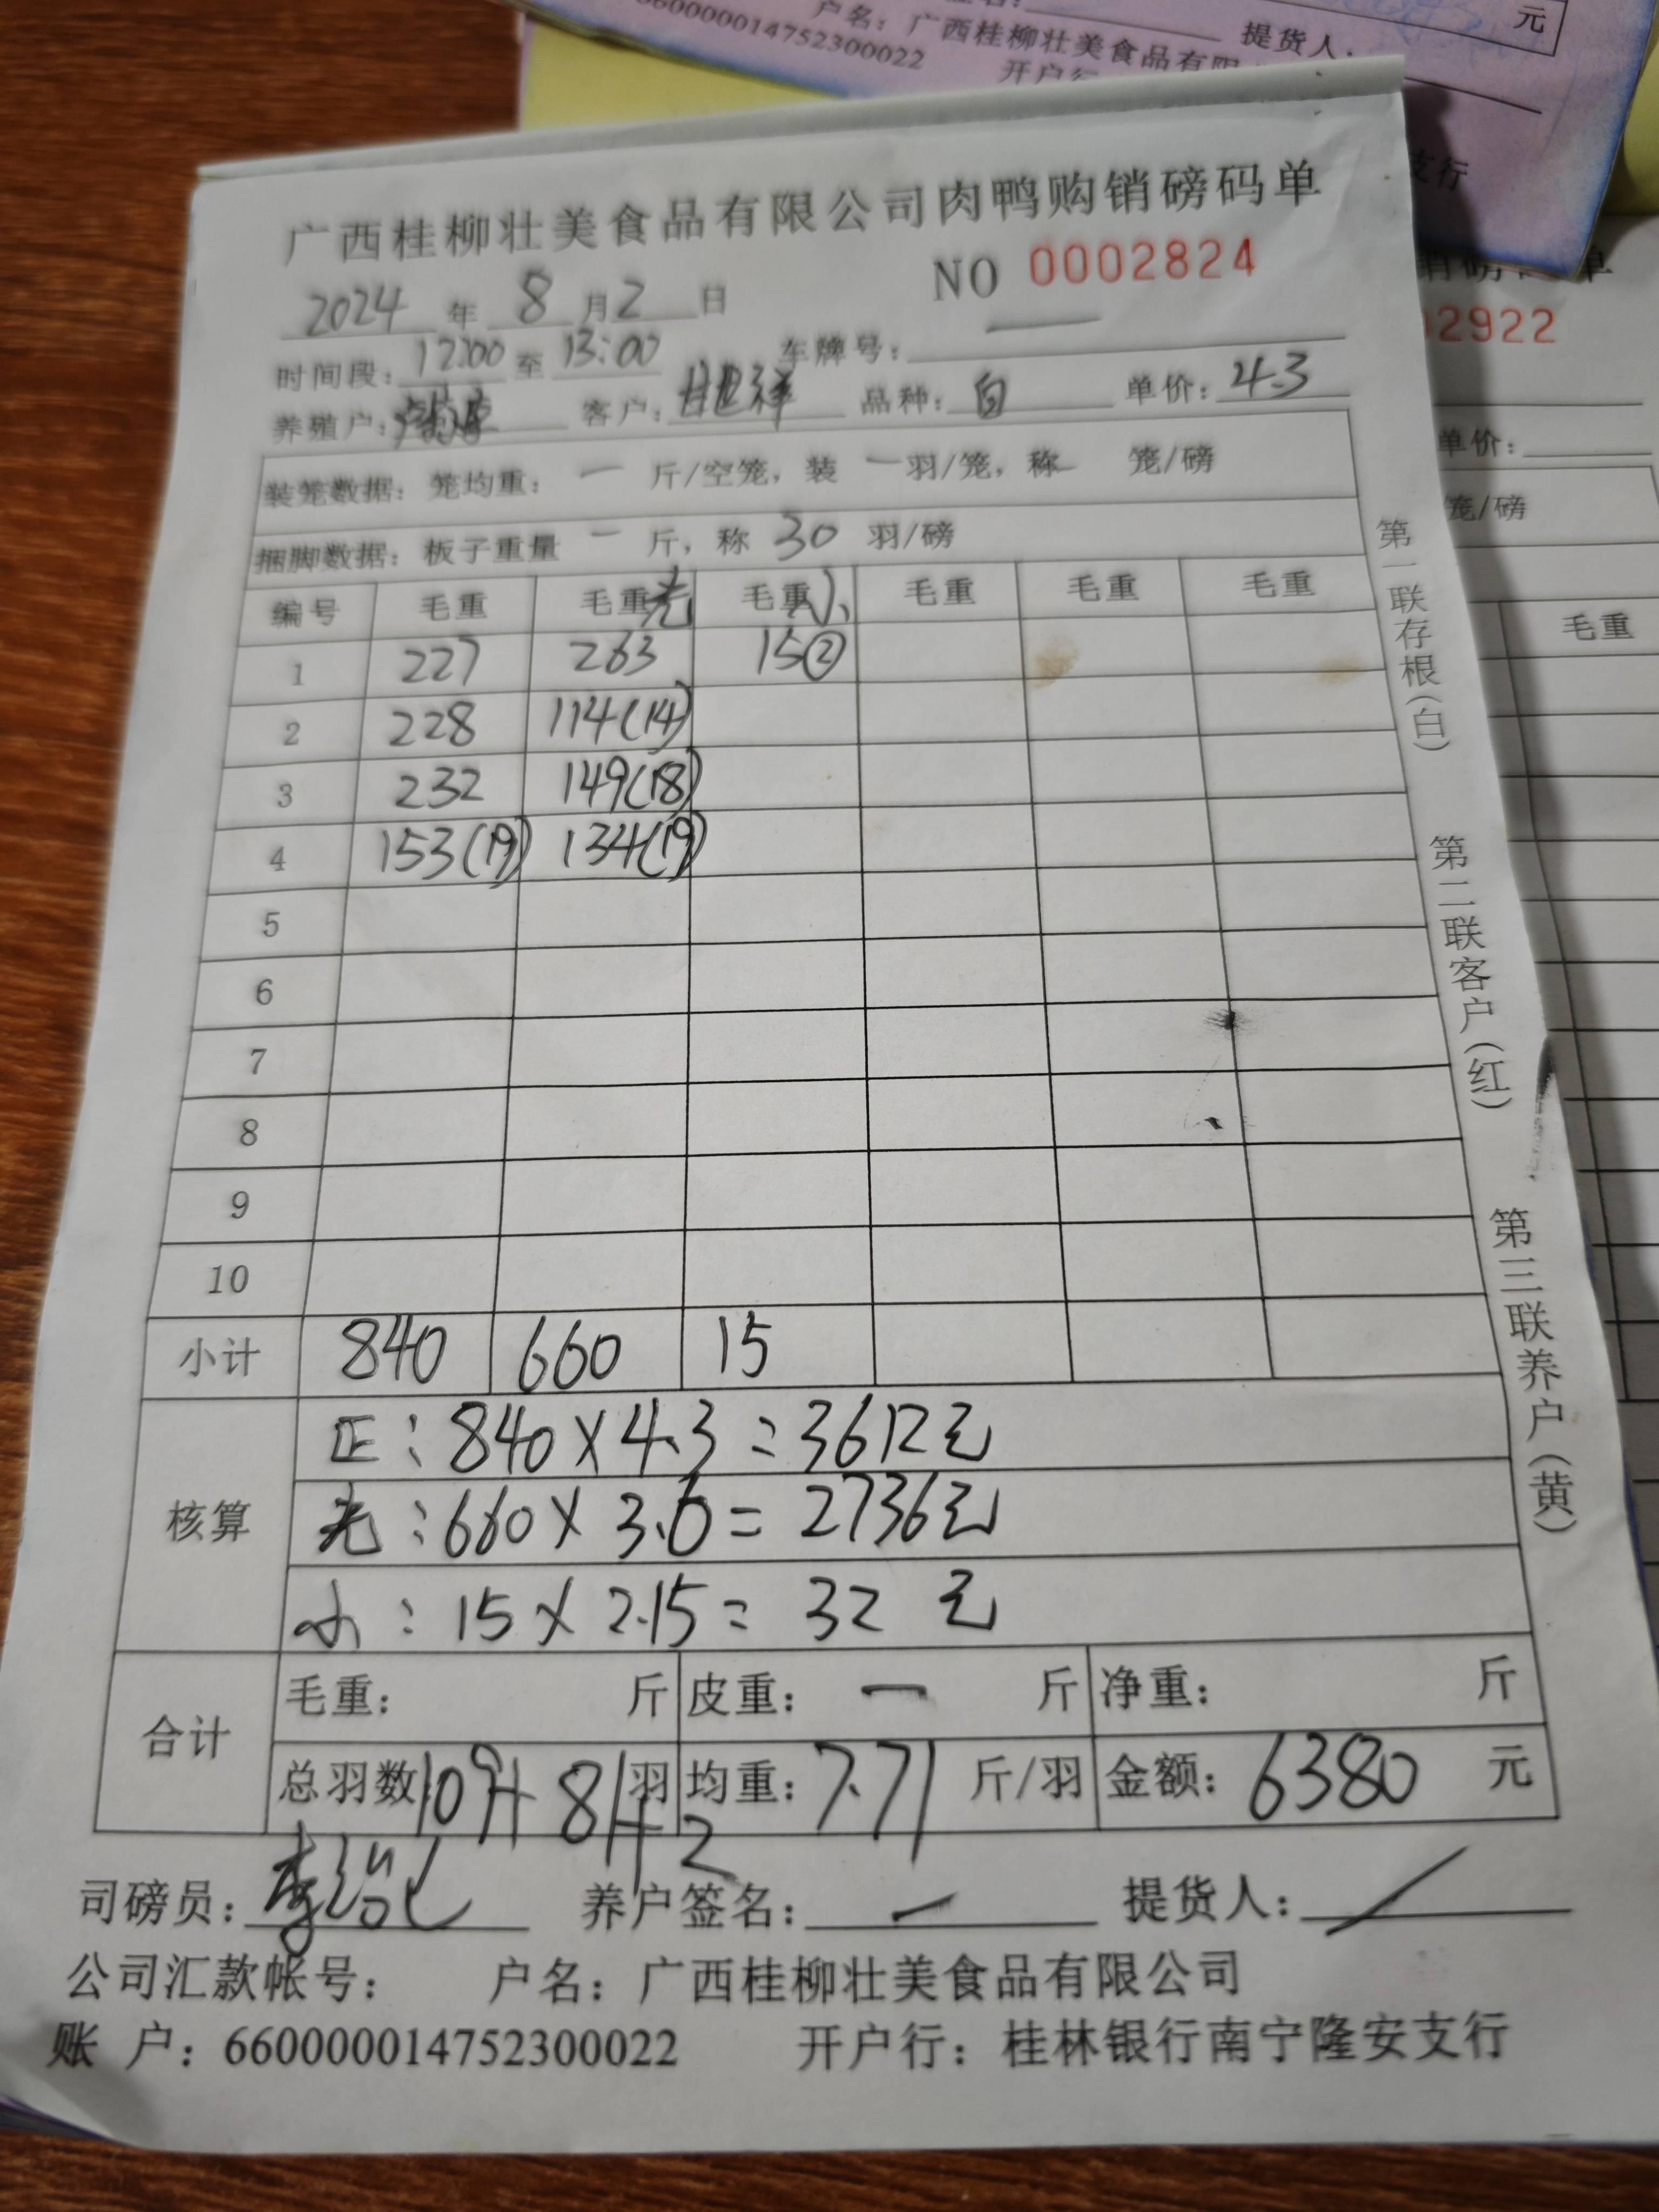 元
户名：广西桂柳壮美食品有限
提货人：
660000014752300022
开户行
支行
广西桂柳壮美食品有限公司肉鸭购销磅码单
NO 0002824
2024 年 8 月 2 日
时间段：12:00 至 13:00 车牌号：
养殖户： 客户：甘旭祥 品种：白 单价：4.3
装笼数据：笼均重：一 斤/空笼，装 一 羽/笼，称 笼/磅
捆脚数据：板子重量 一 斤，称 30 羽/磅
编号 毛重 毛重光 毛重小 毛重 毛重 毛重
1 227 263 15②
2 228 114(14)
3 232 149(18)
4 153(19) 134(19)
5
6
7
8
9
10
小计 840 660 15
核算
正：840×4.3=3612元
光：660×3.6=2736元
小：15×2.15=32元
合计
毛重： 斤 皮重：一 斤 净重： 斤
总羽数：109+81+2 羽 均重：7.71 斤/羽 金额：6380 元
司磅员： 养户签名：一 提货人：/
公司汇款帐号： 户名：广西桂柳壮美食品有限公司
账 户：660000014752300022 开户行：桂林银行南宁隆安支行
第一联存根(白)
第二联客户(红)
第三联养户(黄)
销磅码单
02922
单价：
笼/磅
毛重